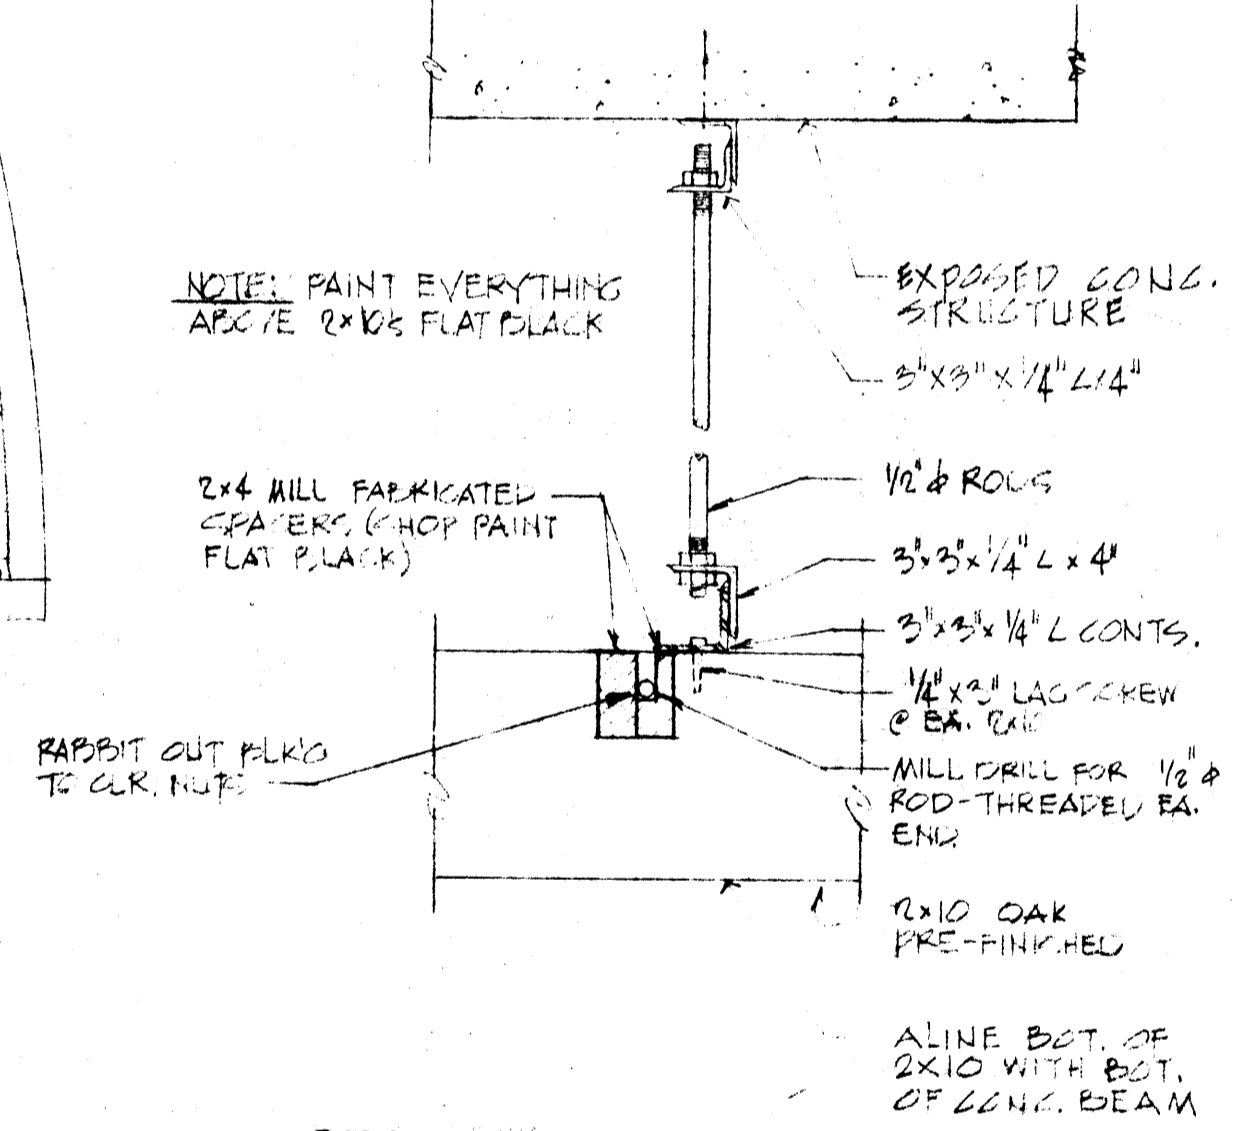 NOTE: PAINT EVERYTHING
ABOVE 2x10's FLAT BLACK
EXPOSED CONC.
STRUCTURE
3"x3"x1/4" L 4"
2x4 MILL FABRICATED
SPACERS (SHOP PAINT
FLAT BLACK)
1/2" φ RODS
3"x3"x1/4" L x 4"
3"x3"x1/4" L CONTS.
1/4"x3" LAG SCREW
@ EA. 2x10
RABBIT OUT BLK'G
TO CLR. NUTS
MILL DRILL FOR 1/2" φ
ROD-THREADED EA.
END.
2x10 OAK
PRE-FINISHED
ALINE BOT. OF
2x10 WITH BOT.
OF CONC. BEAM